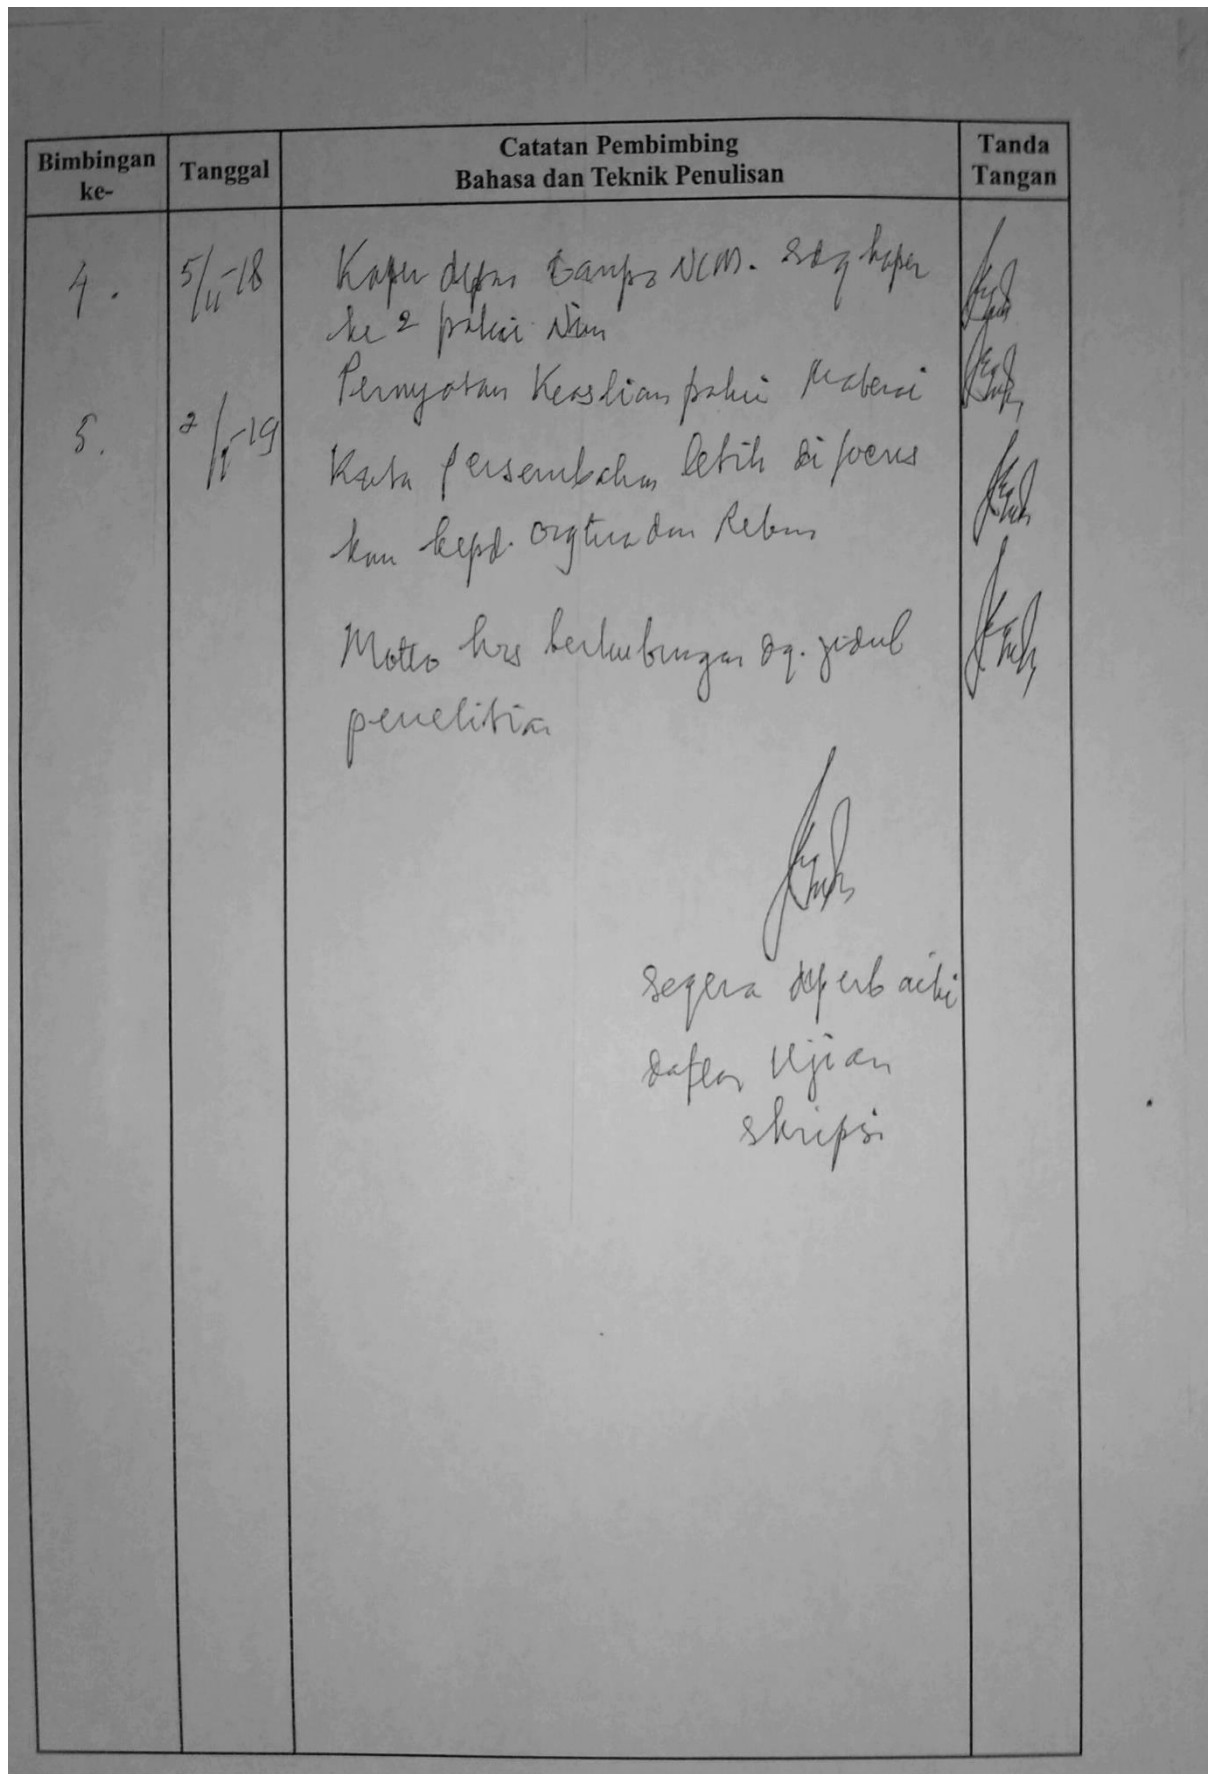 Bimbingan ke-
Tanggal
Catatan Pembimbing
Bahasa dan Teknik Penulisan
Tanda Tangan
4. 5/11-18 Koper depan tanpa NIM. sdg koper
ke 2 pakai Nim
Pernyatan Keaslian pakai Materai
5. 2/1-19 Kata persembahan lebih di focus
kan kepd. orgtua dan
Motto hrs berhubungan dg. judul
penelitian
segera diperbaiki
daftar Ujian
skripsi